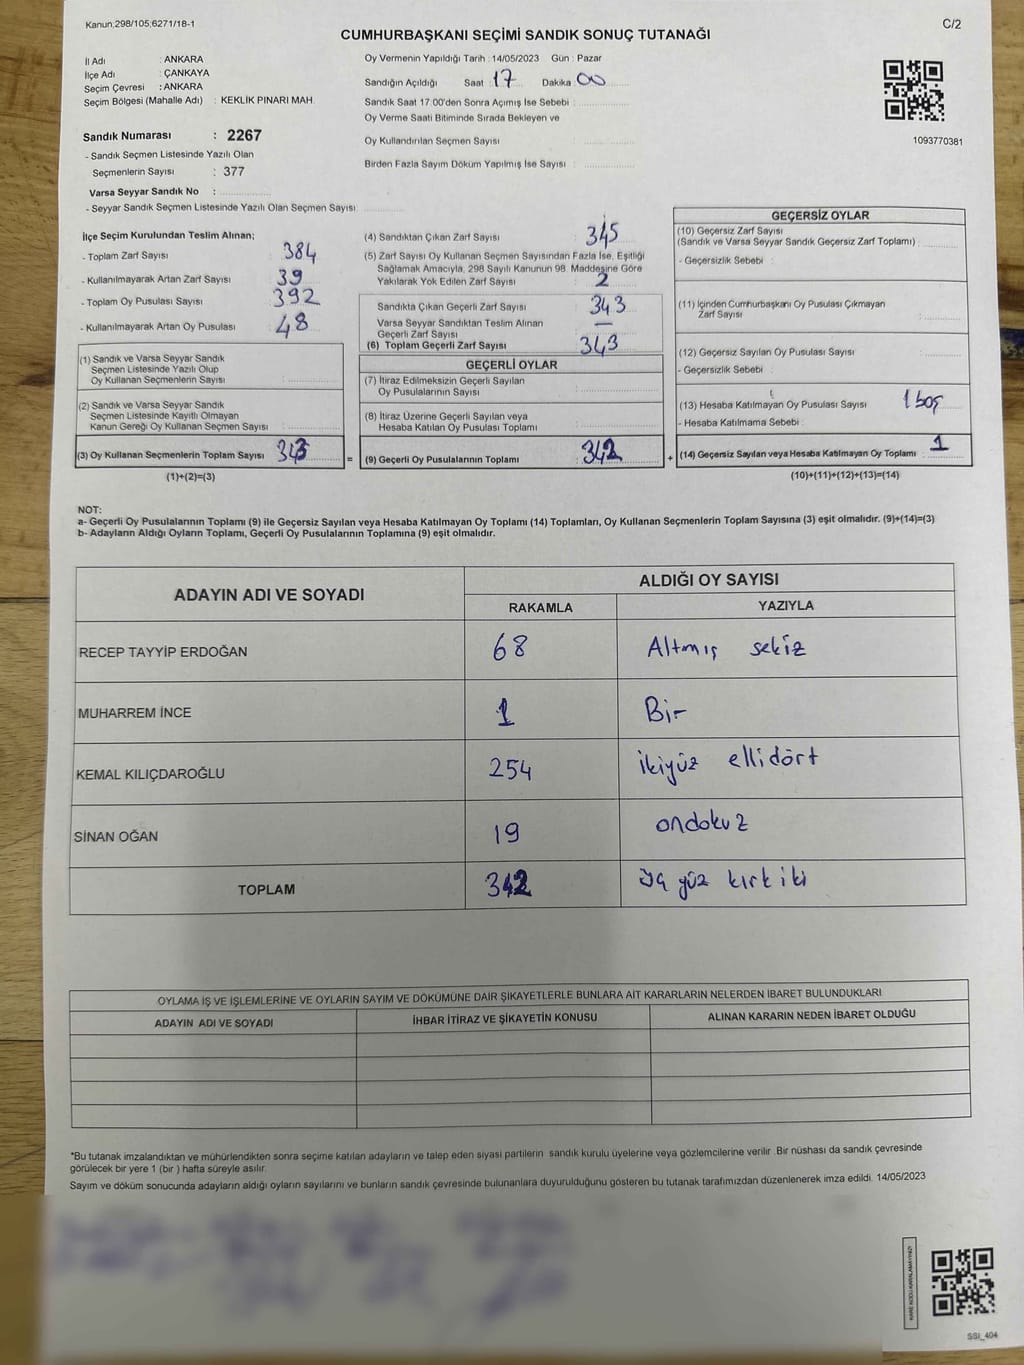 Kanun,298/105;6271/18-1
C/2
CUMHURBAŞKANI SEÇİMİ SANDIK SONUÇ TUTANAĞI
İl Adı : ANKARA
İlçe Adı : ÇANKAYA
Seçim Çevresi : ANKARA
Seçim Bölgesi (Mahalle Adı) : KEKLİK PINARI MAH.
Sandık Numarası : 2267
- Sandık Seçmen Listesinde Yazılı Olan
Seçmenlerin Sayısı : 377
Varsa Seyyar Sandık No :
- Seyyar Sandık Seçmen Listesinde Yazılı Olan Seçmen Sayısı:
Oy Vermenin Yapıldığı Tarih : 14/05/2023 Gün : Pazar
Sandığın Açıldığı Saat : 17 Dakika : 00
Sandık Saat 17:00'den Sonra Açımış İse Sebebi :
Oy Verme Saati Bitiminde Sırada Bekleyen ve
Oy Kullandırılan Seçmen Sayısı :
Birden Fazla Sayım Döküm Yapılmış İse Sayısı :
1093770381
İlçe Seçim Kurulundan Teslim Alınan;
- Toplam Zarf Sayısı : 384
- Kullanılmayarak Artan Zarf Sayısı : 39
- Toplam Oy Pusulası Sayısı : 392
- Kullanılmayarak Artan Oy Pusulası : 48
(1) Sandık ve Varsa Seyyar Sandık
Seçmen Listesinde Yazılı Olup
Oy Kullanan Seçmenlerin Sayısı :
(2) Sandık ve Varsa Seyyar Sandık
Seçmen Listesinde Kayıtlı Olmayan
Kanun Gereği Oy Kullanan Seçmen Sayısı :
(3) Oy Kullanan Seçmenlerin Toplam Sayısı : 343
=
(1)+(2)=(3)
(4) Sandıktan Çıkan Zarf Sayısı : 345
(5) Zarf Sayısı Oy Kullanan Seçmen Sayısından Fazla İse, Eşitliği
Sağlamak Amacıyla, 298 Sayılı Kanunun 98. Maddesine Göre
Yakılarak Yok Edilen Zarf Sayısı : 2
Sandıkta Çıkan Geçerli Zarf Sayısı : 343
Varsa Seyyar Sandıktan Teslim Alınan
Geçerli Zarf Sayısı : —
(6) Toplam Geçerli Zarf Sayısı : 343
GEÇERLİ OYLAR
(7) İtiraz Edilmeksizin Geçerli Sayılan
Oy Pusulalarının Sayısı :
(8) İtiraz Üzerine Geçerli Sayılan veya
Hesaba Katılan Oy Pusulası Toplamı :
(9) Geçerli Oy Pusulalarının Toplamı : 342
+
GEÇERSİZ OYLAR
(10) Geçersiz Zarf Sayısı
(Sandık ve Varsa Seyyar Sandık Geçersiz Zarf Toplamı) :
- Geçersizlik Sebebi :
(11) İçinden Cumhurbaşkanı Oy Pusulası Çıkmayan
Zarf Sayısı :
(12) Geçersiz Sayılan Oy Pusulası Sayısı :
- Geçersizlik Sebebi :
(13) Hesaba Katılmayan Oy Pusulası Sayısı : 1 boş
- Hesaba Katılmama Sebebi :
(14) Geçersiz Sayılan veya Hesaba Katılmayan Oy Toplamı : 1
(10)+(11)+(12)+(13)=(14)
NOT:
a- Geçerli Oy Pusulalarının Toplamı (9) ile Geçersiz Sayılan veya Hesaba Katılmayan Oy Toplamı (14) Toplamları, Oy Kullanan Seçmenlerin Toplam Sayısına (3) eşit olmalıdır. (9)+(14)=(3)
b- Adayların Aldığı Oyların Toplamı, Geçerli Oy Pusulalarının Toplamına (9) eşit olmalıdır.
ADAYIN ADI VE SOYADI
ALDIĞI OY SAYISI
RAKAMLA YAZIYLA
RECEP TAYYİP ERDOĞAN 68 Altmış sekiz
MUHARREM İNCE 1 Bir
KEMAL KILIÇDAROĞLU 254 ikiyüz ellidört
SİNAN OĞAN 19 ondokuz
TOPLAM 342 üç yüz kırk iki
OYLAMA İŞ VE İŞLEMLERİNE VE OYLARIN SAYIM VE DÖKÜMÜNE DAİR ŞİKAYETLERLE BUNLARA AİT KARARLARIN NELERDEN İBARET BULUNDUKLARI
ADAYIN ADI VE SOYADI İHBAR İTİRAZ VE ŞİKAYETİN KONUSU ALINAN KARARIN NEDEN İBARET OLDUĞU
*Bu tutanak imzalandıktan ve mühürlendikten sonra seçime katılan adayların ve talep eden siyasi partilerin sandık kurulu üyelerine veya gözlemcilerine verilir. Bir nüshası da sandık çevresinde
görülecek bir yere 1 (bir ) hafta süreyle asılır.
Sayım ve döküm sonucunda adayların aldığı oyların sayılarını ve bunların sandık çevresinde bulunanlara duyurulduğunu gösteren bu tutanak tarafımızdan düzenlenerek imza edildi. 14/05/2023
KARE KODU KARALAMAYINIZ!
SSI_404